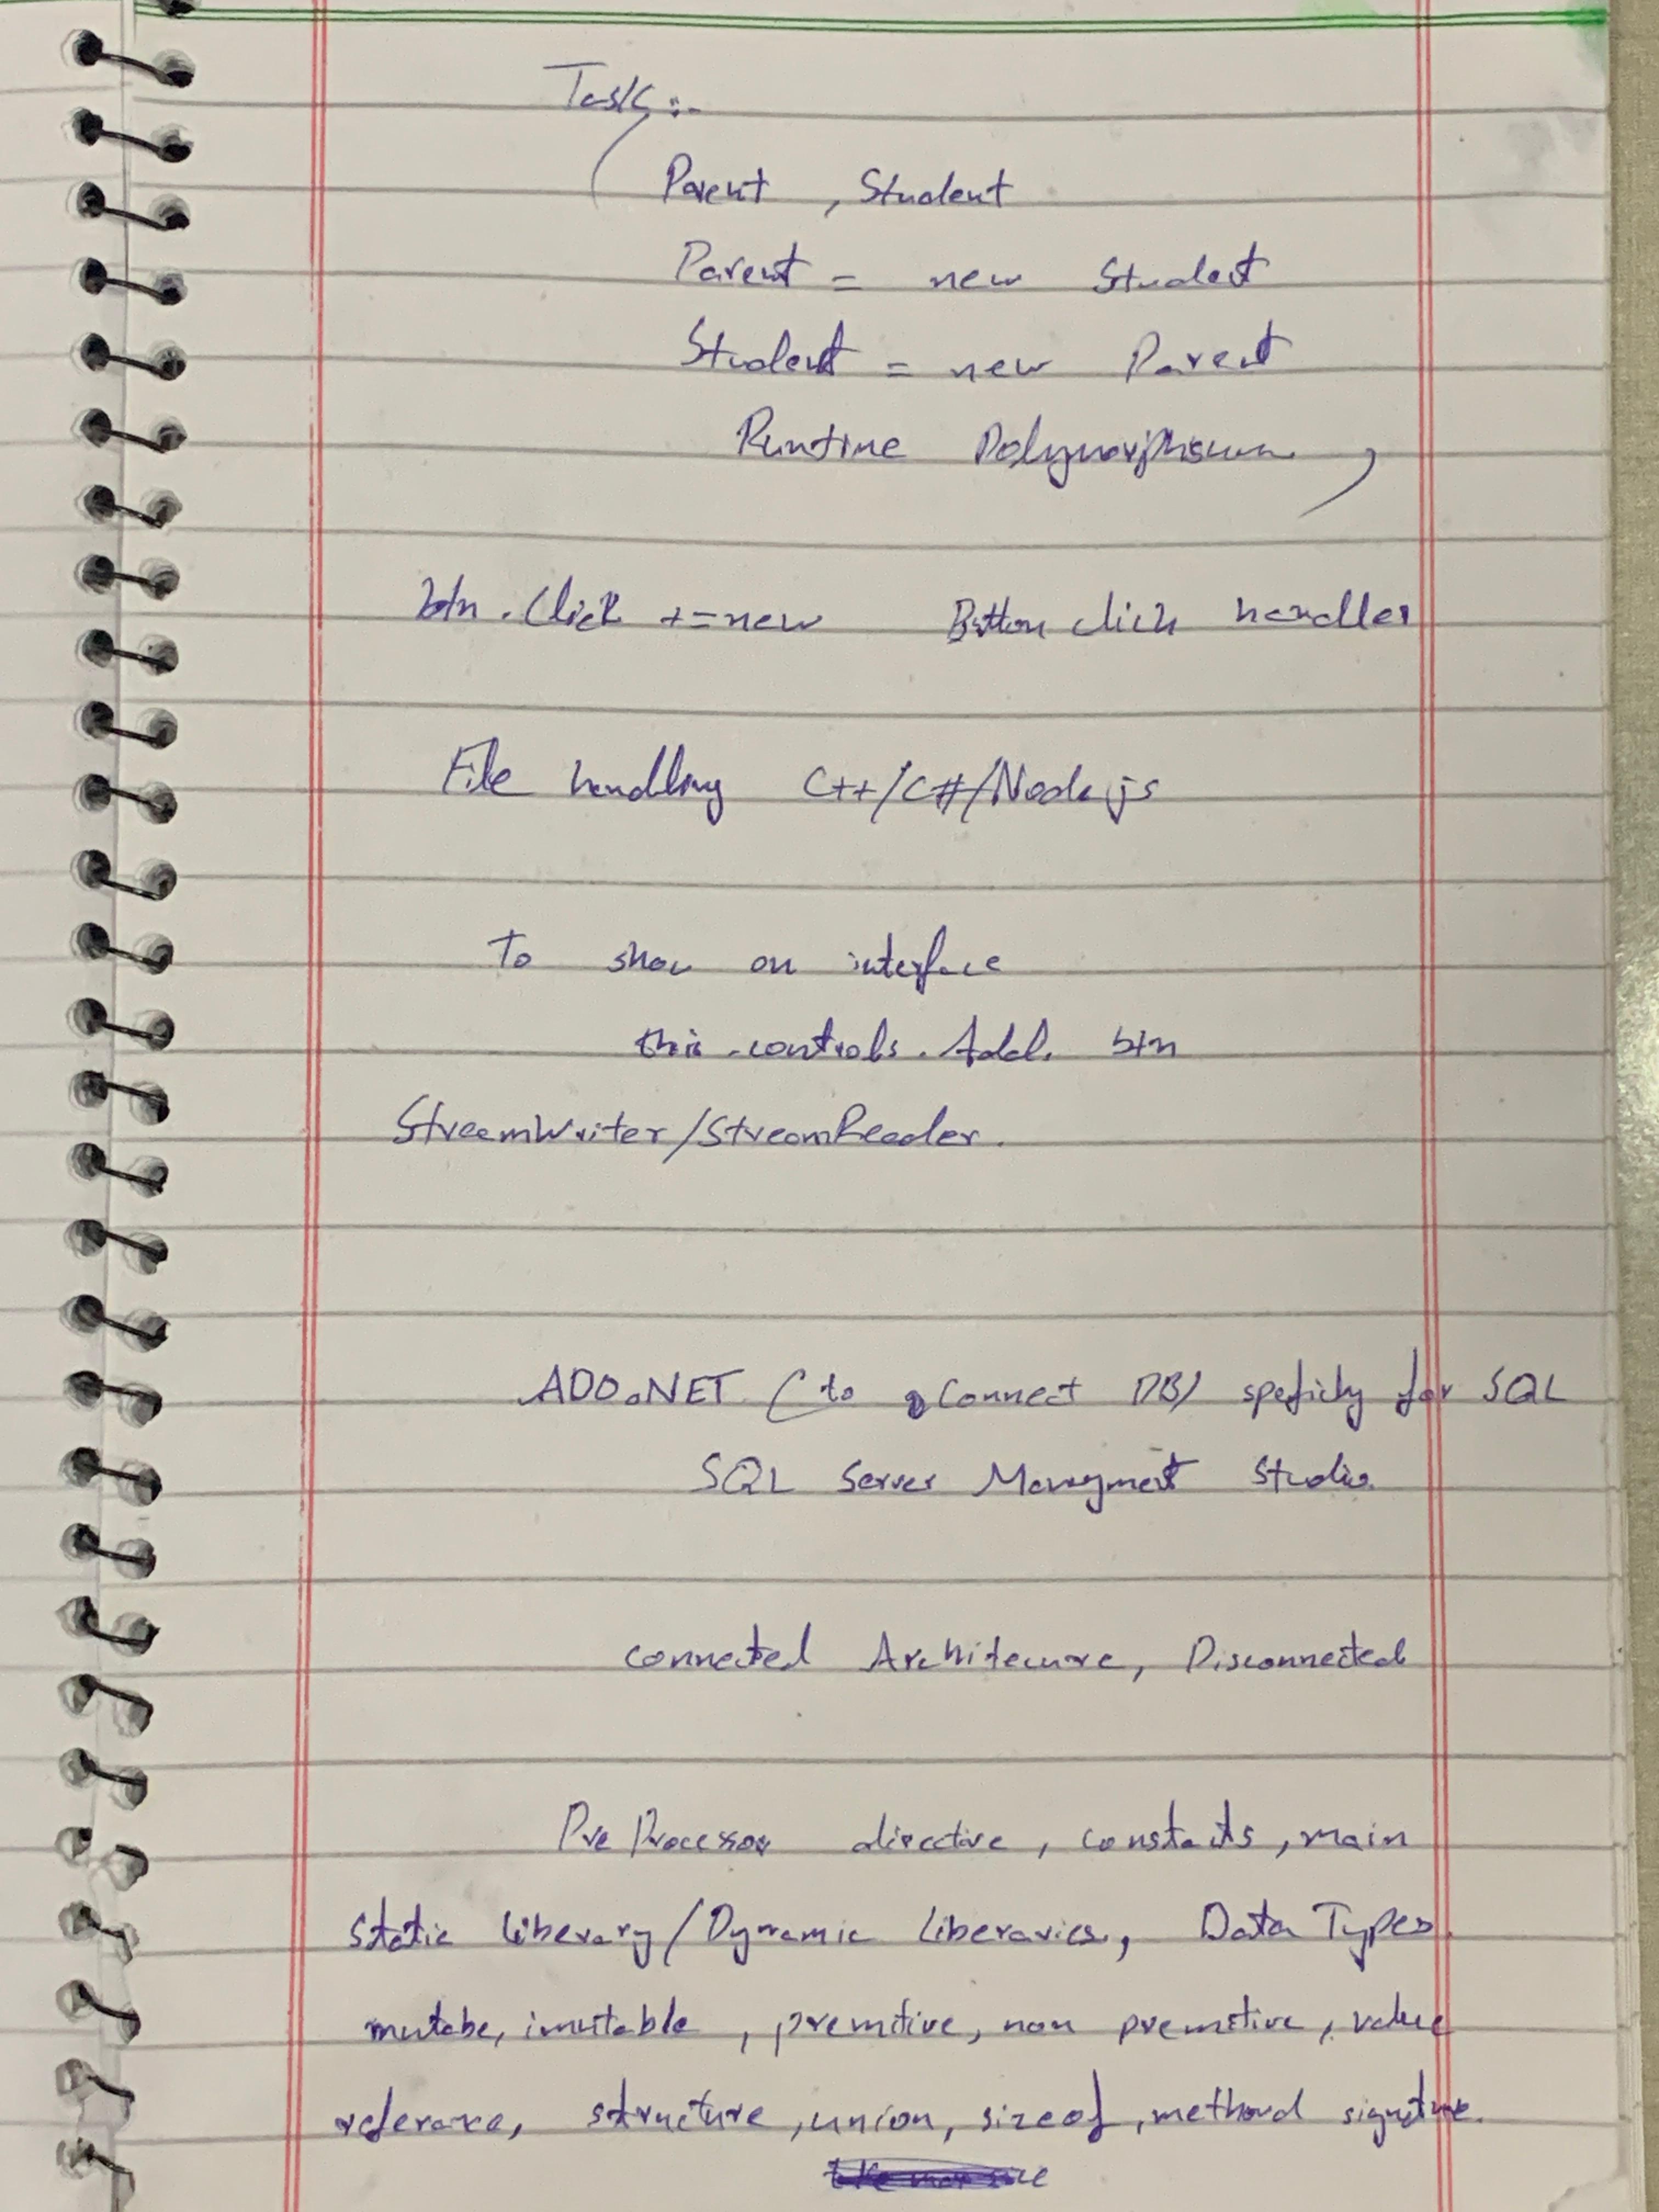 Task :-
( Parent , Student
Parent = new Student
Student = new Parent
Runtime Polymorphism )
btn . Click += new Button click handler
File handling C++/C#/Node js
To show on interface
this . controls . Add . btn
StreamWriter/StreamReader .
ADO.NET ( to connect DB) speficly for SQL
SQL Server Managment Studio.
connected Architecure, Disconnected
Pre Processor directive , constats , main
static liberary/Dynamic Liberaries, Data Types
mutabe, imutable , premitive, non premetive , value
referance, structure , union, sizeof , methord signature.